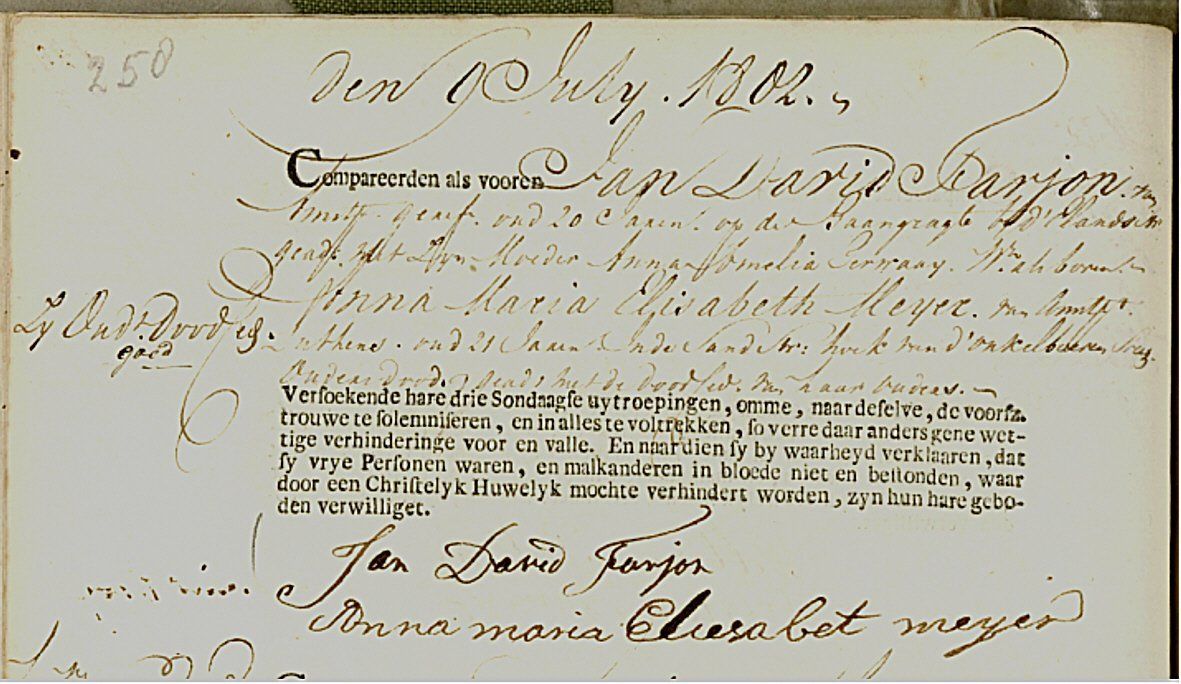 258
den 9 July. 1802.
Compareerden als vooren Jan David Farjon. van
Amst. geref. oud 20 Jaaren. op de Baangragt
geads. met Zyn Moeder Anna Cornelia
Anna Maria Elisabeth Meyer. van Amst.
Luthers. oud 21 Jaaren. in de Sandstr: hoek van d'onkelboeren
Ouders dood. geads met de haar Ouders.
Zy Oud: Dood
goed
Versoekende hare drie Sondaagse uytroepingen, omme, naar deselve, de voorsz.
trouwe te solemniseren, en in alles te voltrekken, so verre daar anders gene wet-
tige verhinderinge voor en valle. En naar dien sy by waarheyd verklaaren, dat
sy vrye Personen waren, en malkanderen in bloede niet en bestonden, waar
door een Christelyk Huwelyk mochte verhindert worden, zyn hun hare gebo-
den verwilliget.
Jan David Farjon
Anna maria Eliesabet meyer